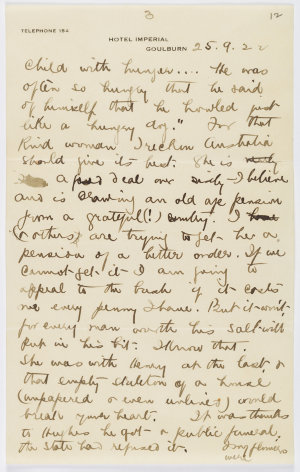 3
12
TELEPHONE 154
HOTEL IMPERIAL
GOULBURN 25.9.22
child with hunger.... He was
often so hungry that he said
of himself that he howled just
like a hungry dog." For that
kind woman I reckon Australia
should give its best. She is
a good deal over sixty - I believe
and is drawing an old age pension
from a grateful (!) country. I
(& others) are trying to get her a
pension of a better order. If we
cannot get it - I am going to
appeal to the bush if it costs
me every penny I have. But it won't
for every man worth his salt will
put in his bit. I know that.
She was with Henry at the last &
that empty skeleton of a house
(unpapered or even unlined) would
break your heart. It was thanks
to Hughes he got a public funeral,
the State had refused it.
flowers
were